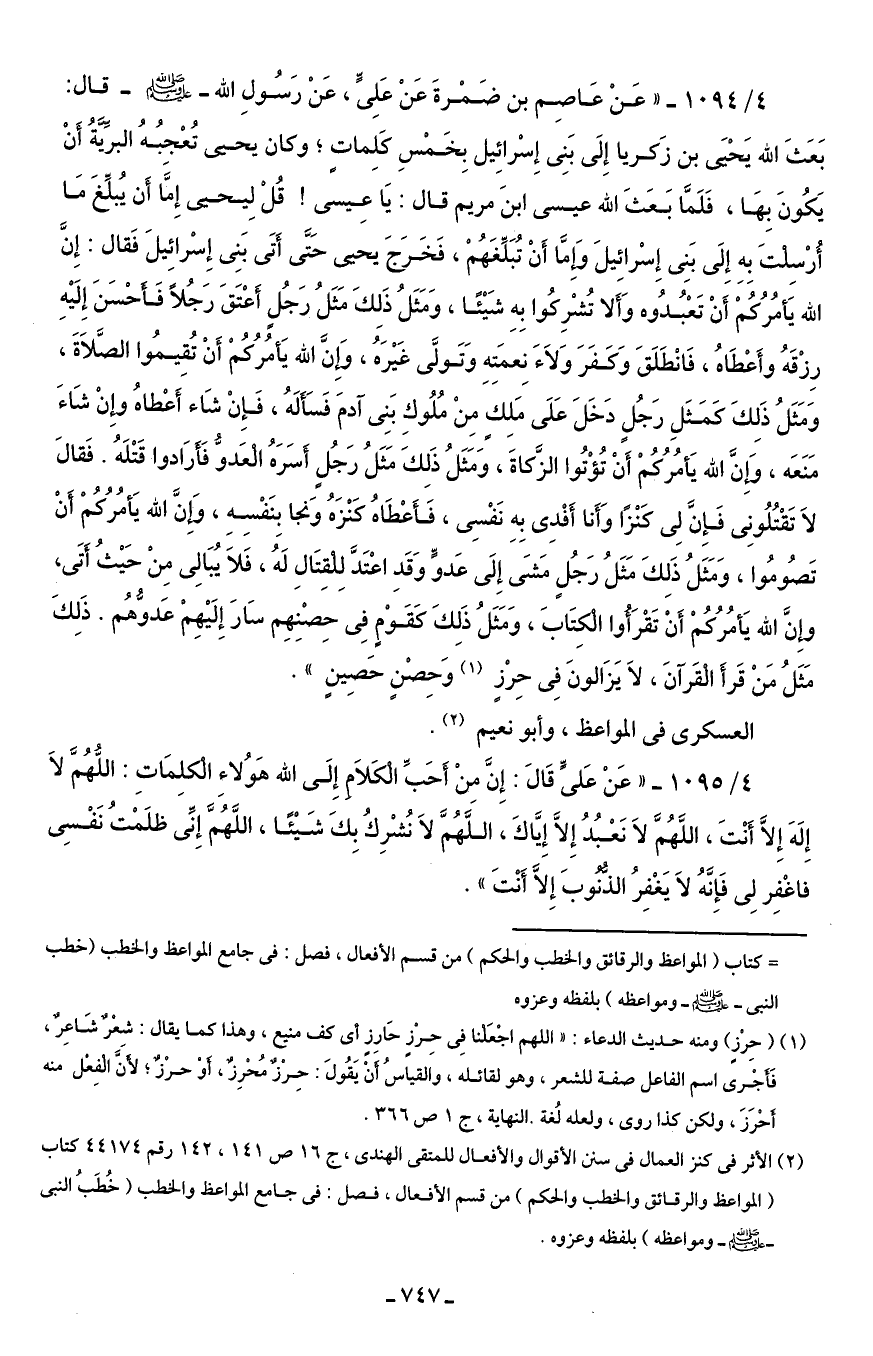 ٤/ ١٠٩٤ ـ « عَـنْ عَاصِمِ بن ضَمْرةَ عَنْ عَلِىٍّ ، عَنْ رَسُولِ الله ـ ﷺ ـ قال:
بَعَثَ الله يَحْيَى بن زكريا إلَى بَنِى إسْرائيل بِخَمْسِ كَلِماتٍ ؛ وكان يحيى تُعْجِبُهُ البرِيَّةُ أنْ
يَكُونَ بِهَا ، فَلَمَّا بَعَثَ الله عيسى ابن مريم قال : يَا عيسى ! قُلْ ليحيى إمَّا أن يُبلِّغَ مَا
أُرْسِلْتَ بِه إلَى بَنِى إسْرائيلَ وَإمَّا أنْ تُبَلِّغَهُمْ ، فَخَرَجَ يحيى حَتَّى أتَى بَنِى إسْرائيلَ فَقال : إنَّ
الله يأمُرُكُمْ أنْ تَعْبُدُوه وَألا تُشْرِكُوا بِه شَيْئًا ، وَمَثَلُ ذَلكَ مَثَلُ رَجُلٍ أعْتَقَ رَجُلاً فَأحْسَنَ إلَيْهِ
رِزْقَهُ وأعْطَاهُ ، فَانْطَلَقَ وَكَفَرَ وَلاَءَ نِعمتِه وَتَولَّى غَيْرَهُ ، وَإنَّ الله يأمُرُكُمْ أنْ تُقيمُوا الصَّلاَةَ ،
وَمَثَلُ ذَلكَ كَمَثَلِ رَجُلٍ دَخَلَ عَلَى مَلِكٍ مِنْ مُلُوكِ بَنِى آدمَ فَسَألَهُ ، فَإنْ شَاءَ أعْطاهُ وإنْ شَاءَ
مَنَعَه ، وَإنَّ الله يأمُرُكُمْ أنْ تُؤْتُوا الزَّكاةَ ، وَمَثَلُ ذَلكَ مَثَلُ رَجُلٍ أسَرَهُ الْعَدوُّ فَأرَادوا قَتْلَهُ . فَقالَ
لاَ تَقْتُلُونِى فَإنَّ لِى كَنْزًا وَأنا أفْدِى بِه نَفْسِى ، فَأعْطَاهُ كَنْزَهُ وَنجا بِنَفْسِه ، وَإنَّ الله يأمُرُكُمْ أنْ
تَصُومُوا ، وَمَثَلُ ذَلكَ مَثَلُ رَجُلٍ مَشَى إلَى عَدوٍّ وَقَدِ اعْتَدَّ لِلْقِتَالِ لَهُ ، فَلاَ يُبَالِى مِنْ حَيْثُ أتَى،
وإنَّ الله يأمُرُكُمْ أنْ تَقْرأُوا الْكِتَابَ ، وَمَثَلُ ذَلكَ كَقَوْمٍ فِى حِصْنِهِم سَارَ إلَيْهِمْ عَدوُّهُم . ذَلِكَ
مَثَلُ مَنْ قَرأَ الْقُرآنَ ، لاَ يَزَالونَ فِى حِرْزٍ (١) وَحِصْنٍ حَصِينٍ » .
العسكرى فى المواعظ ، وأبو نعيم (٢) .
٤/ ١٠٩٥ ـ « عَنْ عَلىٍّ قَالَ : إنَّ مِنْ أحَبِّ الْكَلاَمِ إلَـى الله هَؤلاءِ الْكلِمَاتِ : اللَّهُمَّ لاَ
إلَهَ إلاَّ أنْتَ ، اللَّهُمَّ لاَ نَعْبُدُ إلاَّ إيَّاكَ ، اللَّهُمَّ لاَ نُشْرِكُ بِكَ شَيْئًا ، اللَّهُمَّ إنِّى ظلَمْتُ نَفْسِى
فاغْفِر لِى فَإنَّهُ لاَ يَغْفِرُ الذُّنُوبَ إلاَّ أنْتَ » .
= كتاب ( المواعظ والرقائق والخطب والحكم ) من قسم الأفعال ، فصل : فى جامع المواعظ والخطب (خطب
النبى ـ ﷺ ـ ومواعظه ) بلفظه وعزوه
(١) ( حِرْز) ومنه حديث الدعاء : « اللهم اجعَلْنا فِى حِرْزٍ حَارِزٍ أى كف منيع ، وهذا كما يقال : شِعْرٌ شَاعِرٌ ،
فَأجْرى اسم الفاعل صفة للشعر ، وهو لقائله ، والقياسُ أنْ يَقُولَ : حِرْزٌ مُحْرِزٌ، أوْ حرْزٌ ؛ لأنَّ الْفِعْل منه
أحْرَزَ ، ولكن كذا روى ، ولعله لُغة .النهاية ، ج ١ ص ٣٦٦ .
(٢) الأثر فى كنز العمال فى سنن الأقوال والأفعال للمتقى الهندى ، ج ١٦ ص ١٤١ ، ١٤٢ رقم ٤٤١٧٤ كتاب
( المواعظ والرقائق والخطب والحكم ) من قسم الأفعال ، فصل : فى جامع المواعظ والخطب ( خُطَبُ النبى
ـ ﷺ ـ ومواعظه ) بلفظه وعزوه .
ـ ٧٤٧ ـ